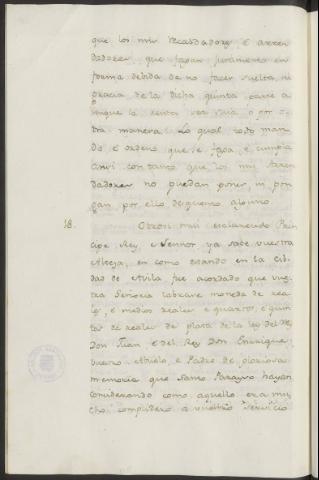 que los mis Recabdadores é arren
dadores que fagan juramento en
forma debida de no facer suelta ni
gracia de la dicha quinta parte a
nique la renta sea suia o por o-
tra manera. Lo qual todo man
do é ordeno que se faga, é cumpla
ansi con tanto que los mis Arren
dadores no puedan poner, ni pon
gan por ello descuento alguno
18. Otrosi mui esclarecido Prin
cipe Rey, e Señor ya sabe vuestra
Alteza, en como estando en la Cib-
dad de Avila fue acordado que vues
tra Señoria labrase moneda de rea-
les, é medios reales é quartos, é quin
tos de reales de plata de la ley del Rey
Don Juan é del Rey Don Enrique,
vuestro Abuelo, é Padre de gloriosa
memoria que Santo Parayso hayan
considerando como aquello era mu
cho complidero a vuestro Servicio